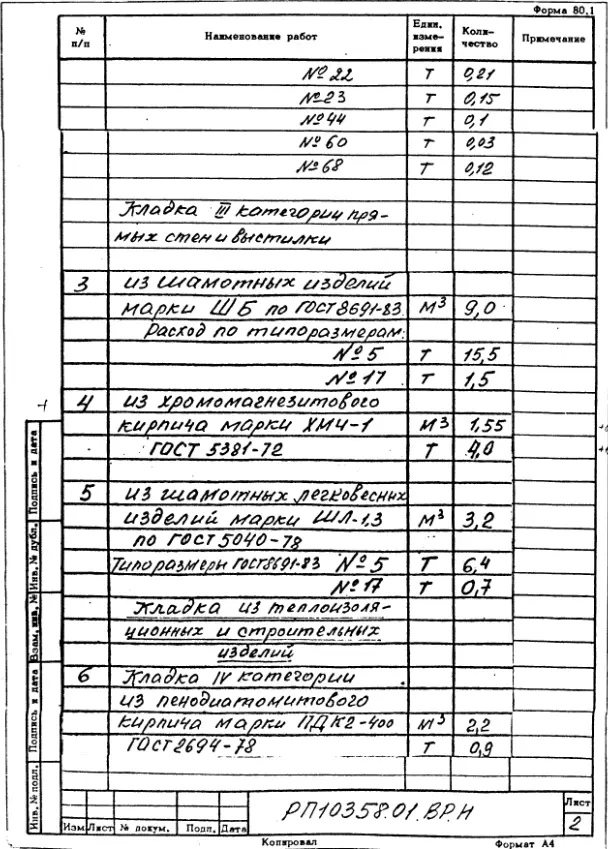 Форма 80.1
№ п/п Наименование работ Един. изме- рения Коли- чество Примечание
№ 22 Т 0,21
№ 23 Т 0,15
№ 44 Т 0,1
№ 60 Т 0,03
№ 68 Т 0,12
Кладка III категории пря-
мых стен и выстилки
3 из шамотных изделий
марки ШБ по ГОСТ 8691-83. М³ 9,0
Расход по типоразмерам:
№ 5 Т 15,5
№ 17 Т 1,5
4 из хромомагнезитового
кирпича марки ХМЧ-1 М3 1,55
ГОСТ 5381-72 Т 4,0
5 Из шамотных легковесных
изделий марки ШЛ-1,3 М³ 3,2
по ГОСТ 5040-78
Типоразмеры ГОСТ8691-83 № 5 Т 6,4
№ 17 Т 0,7
Кладка из теплоизоля-
ционных и строительных
изделий
6 Кладка IV категории
из пенодиатомитового
кирпича марки ПДК2-400 М3 2,2
ГОСТ 2694-78 Т 0,9
Инв. № подл. Подпись и дата Взам. инв. № Инв. № дубл. Подпись и дата
РП10358.01.ВР.Н
Лист
2
Изм Лист № докум. Подп. Дата
Копировал Формат А4